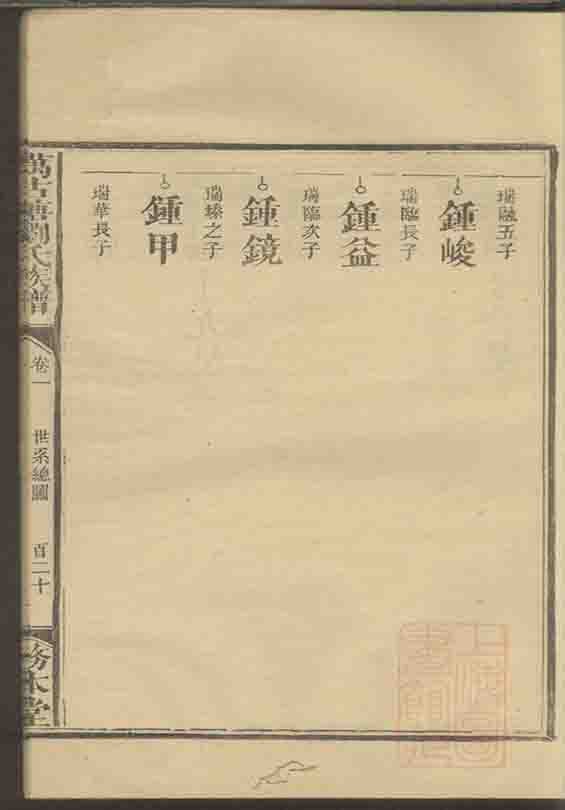 瑞融五子
鍾峻
瑞臨長子
鍾益
瑞臨次子
鍾鏡
瑞臻之子
鍾甲
瑞華長子
劉氏族譜
卷一
世系總圖
百二十
務本堂
上海圖書館藏